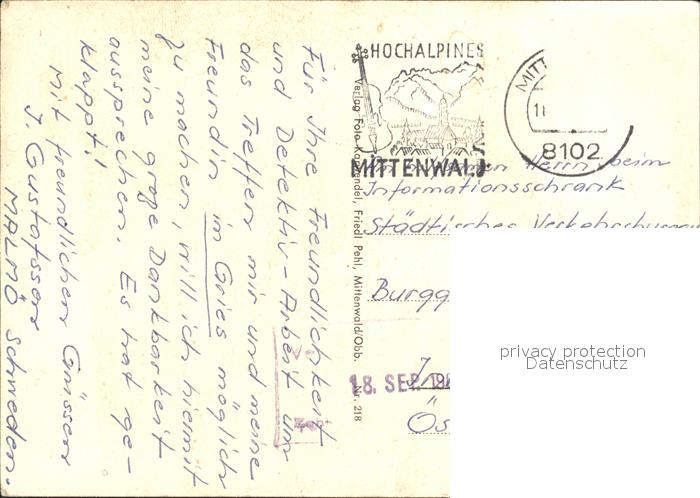 Für Ihre Freundlichkeit
und Detektiv-Arbeit um
das Treffen mir und meine
Freundin im Gries möglich
zu machen, will ich hiermit
meine große Dankbarkeit
aussprechen. Es hat ge-
klappt!
Mit freundlichen Grüssen
J. Gustafsson
MALMÖ Schweden.
Verlag Foto Karwendel, Friedl Pehl, Mittenwald/Obb.
Nr. 218
HOCHALPINES
MITTENWALD
MITT
8102
Herrn beim
Informationsschrank
Städtisches
Burgg
18. SEP. 196
Ös
privacy protection
Datenschutz